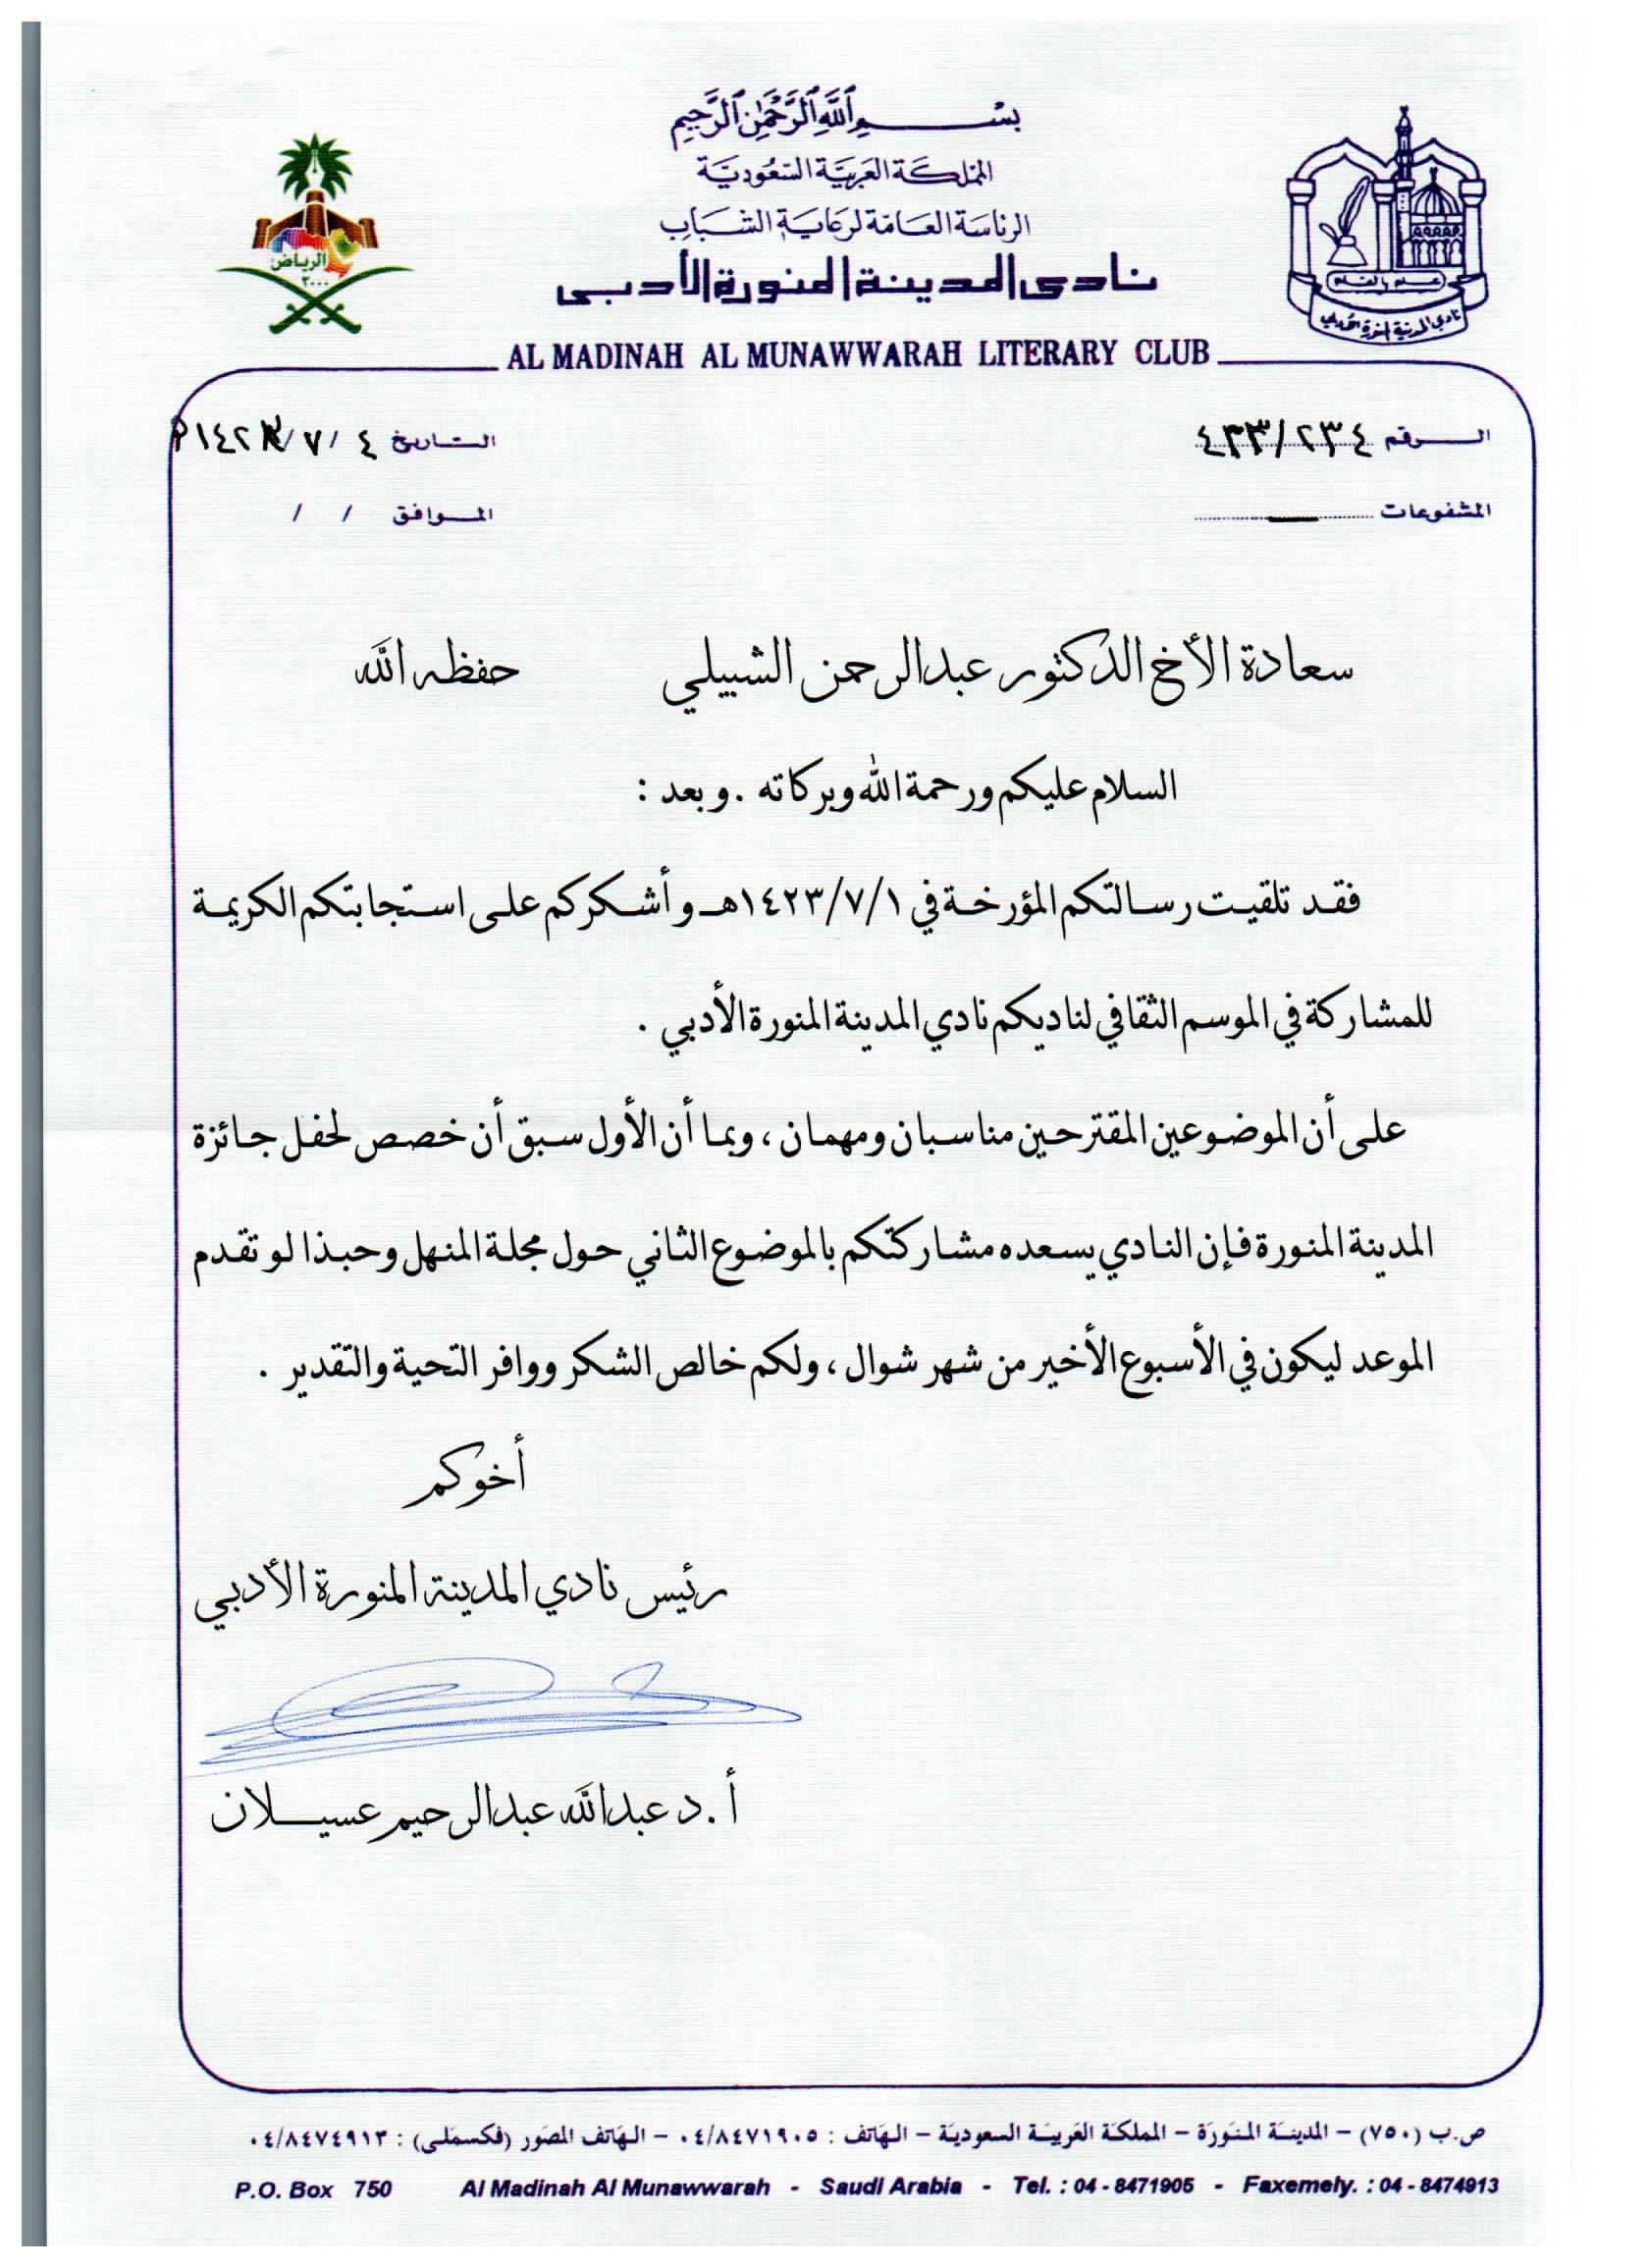 بسم الله الرحمن الرحيم
المملكة العربية السعودية
الرئاسة العامة لرعاية الشباب
نادي المدينة المنورة الأدبي
AL MADINAH AL MUNAWWARAH LITERARY CLUB
الرياض
٢٠٠٠
نادي المدينة المنورة الأدبي
الرقم ٤٣٣/٢٣٤
التاريخ ٤ / ٧ / ١٤٢٣
المشفوعات
الموافق / /
سعادة الأخ الدكتور عبدالرحمن الشبيلي حفظه الله
السلام عليكم ورحمة الله وبركاته . وبعد :
فقد تلقيت رسالتكم المؤرخة في ١٤٢٣/٧/١هـ وأشكركم على استجابتكم الكريمة
للمشاركة في الموسم الثقافي لناديكم نادي المدينة المنورة الأدبي .
على أن الموضوعين المقترحين مناسبان ومهمان ، وبما أن الأول سبق أن خصص لحفل جائزة
المدينة المنورة فإن النادي يسعده مشاركتكم بالموضوع الثاني حول مجلة المنهل وحبذا لو تقدم
الموعد ليكون في الأسبوع الأخير من شهر شوال ، ولكم خالص الشكر ووافر التحية والتقدير .
أخوكم
رئيس نادي المدينة المنورة الأدبي
أ . د عبدالله عبدالرحيم عسيلان
ص.ب (٧٥٠) – المدينة المنورة – المملكة العربية السعودية – الهاتف : ٠٤/٨٤٧١٩٠٥ – الهاتف المصور (فكسملي) : ٠٤/٨٤٧٤٩١٣
P.O. Box 750 Al Madinah Al Munawwarah - Saudi Arabia - Tel. : 04 - 8471905 - Faxemely. : 04 - 8474913